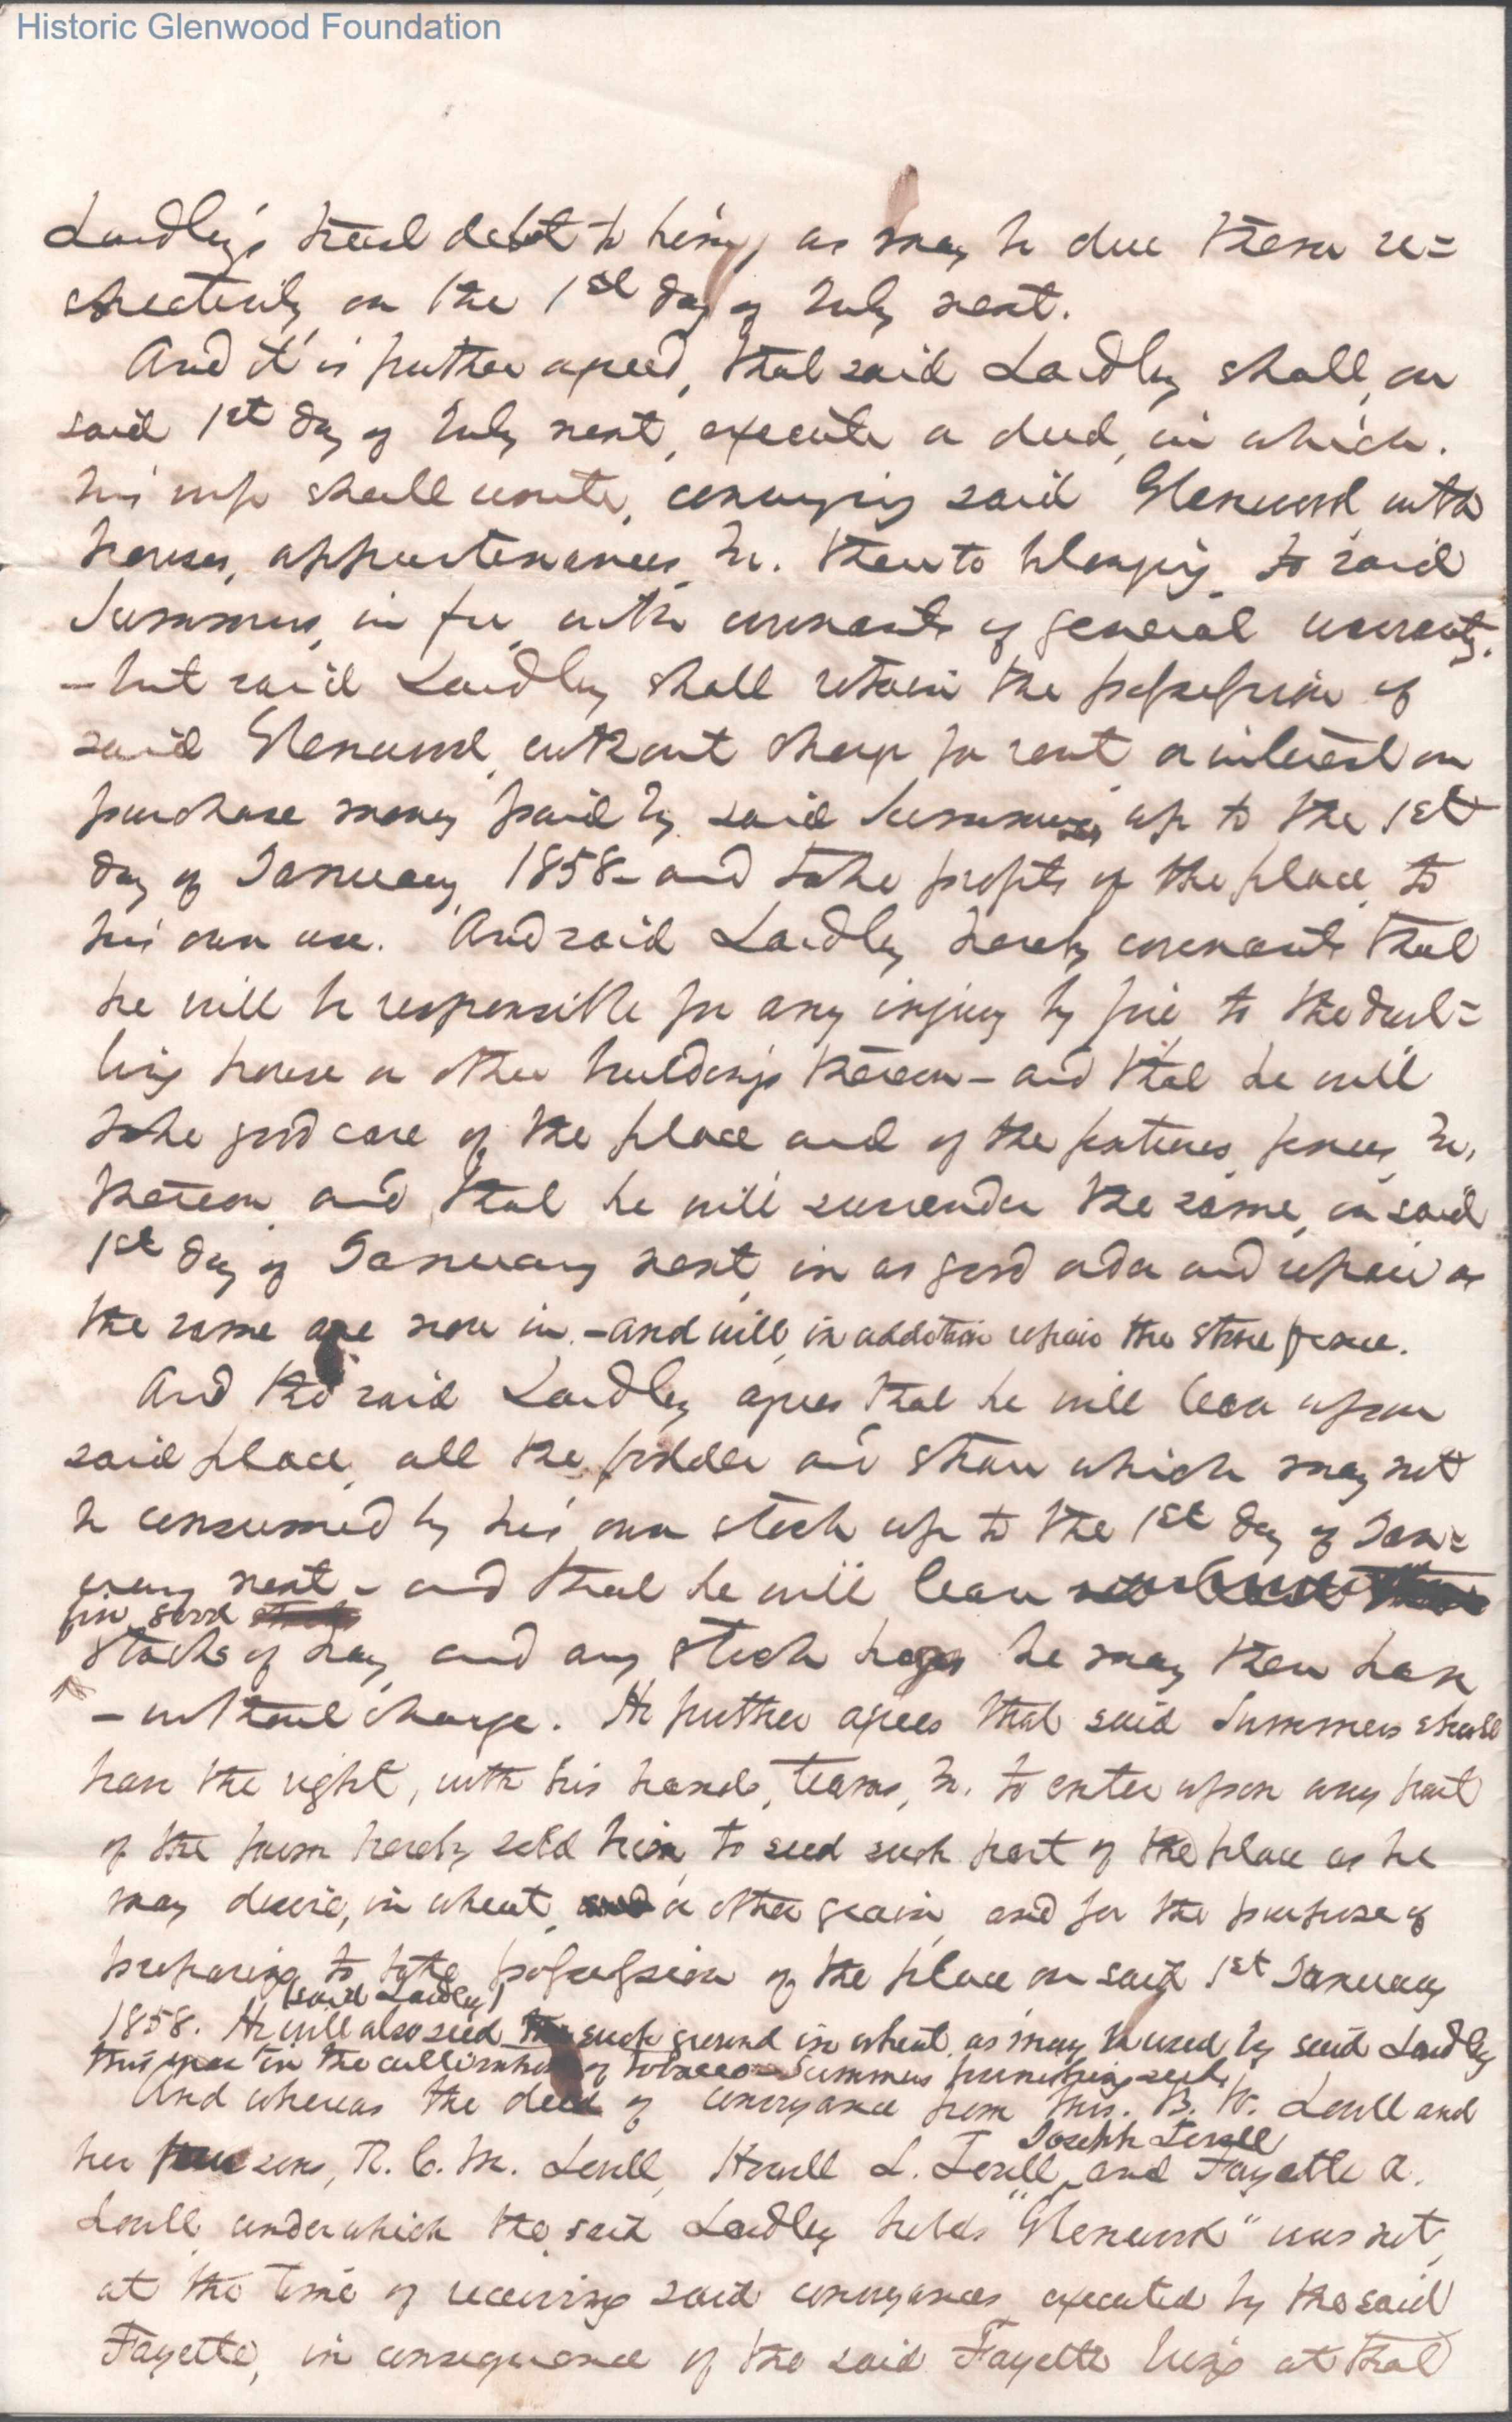 Historic Glenwood Foundation
Laidley's trust debt to him, as may be due them re=
spectively on the 1st day of July next.
And it is further agreed, that said Laidley shall, on
said 1st day of July next, execute a deed, in which
his wife shall unite, conveying said Glenwood with
houses, appurtenances, &c. thereto belonging, to said
Summers, in fee, with covenants of general warranty.
– but said Laidley shall retain the possession of
said Glenwood, without charge for rent or interest on
purchase money paid by said Summers, up to the 1st
day of January, 1858 – and take profits of the place, to
his own use. And said Laidley hereby covenants that
he will be responsible for any injury by fire to the dwel=
ling house or other buildings thereon – and that he will
take good care of the place and of the fixtures, fences, &c.
thereon, and that he will surrender the same, on said
1st day of January next, in as good order and repair as
the same are now in. – and will, in addition repair the stone fence.
And the said Laidley agrees that he will leave upon
said place, all the fodder and straw which may not
be consumed by his own stock up to the 1st day of Jan=
uary next – and that he will leave
five good
stacks of hay, and any stock hogs he may then have
– without charge. He further agrees that said Summers shall
have the right, with his hands, teams, &c. to enter upon any part
of the farm hereby sold him, to seed such part of the place as he
may desire, in wheat, or other grain, and for the purpose of
preparing to take possession of the place on said 1st January
(said Laidley)
1858. He will also seed such ground in wheat, as may be used by said Laidley
this year in the cultivation of tobacco – Summers furnishing seed.
And whereas the deed of conveyance from Mrs. B. W. Lovell and
Joseph Lovell
her sons, R. C. M. Lovell, Howell L. Lovell, and Fayette A.
Lovell, under which the said Laidley holds "Glenwood" was not,
at the time of receiving said conveyances, executed by the said
Fayette, in consequence of the said Fayette being at that